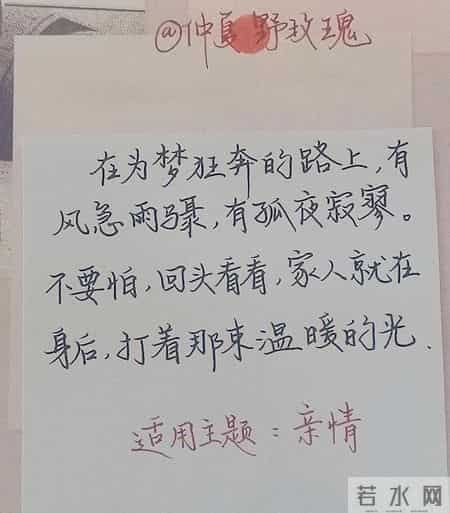 @仲夏野玫瑰
在为梦狂奔的路上,有
风急雨骤,有孤夜寂寥。
不要怕,回头看看,家人就在
身后,打着那束温暖的光.
适用主题:亲情
若水网